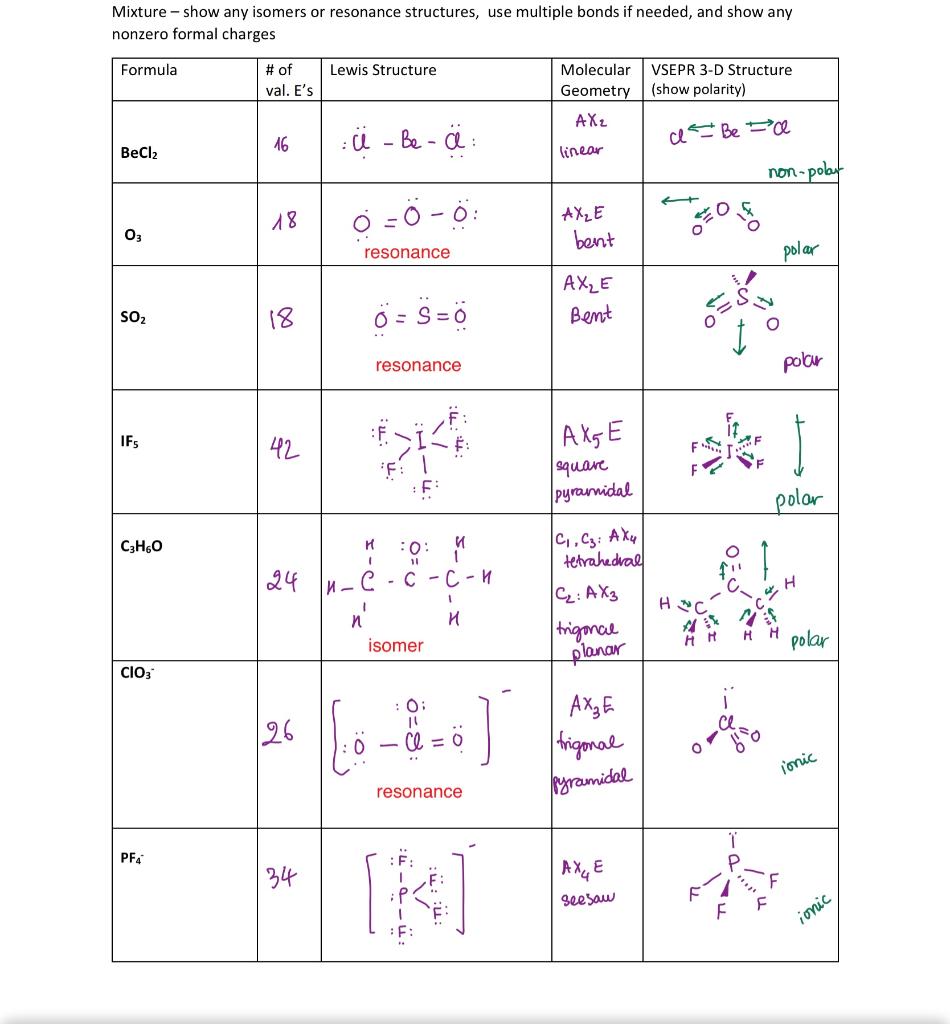 Mixture – show any isomers or resonance structures, use multiple bonds if needed, and show any
nonzero formal charges
Formula
# of
val. E's
Lewis Structure
Molecular
Geometry
VSEPR 3-D Structure
(show polarity)
BeCl₂
16
:Cl – Be – Cl:
AX₂
linear
Cl Be Cl
non-polar
O₃
18
O = O – O:
resonance
AX₂E
bent
O
O O
polar
SO₂
18
O = S = O
resonance
AX₂E
Bent
S
O O
polar
IF₅
42
:F I F:
F:
:F:
:F:
AX₅E
square
pyramidal
F
F I F
F F
polar
C₃H₆O
24
H :O: H
H – C - C – C – H
H H
isomer
C₁, C₃: AX₄
tetrahedral
C₂: AX₃
trigonal
planar
O
C
H C C H
H H H H
polar
ClO₃⁻
26
[ :O: ]⁻
:O – Cl = O
resonance
AX₃E
trigonal
pyramidal
Cl
O O O
ionic
PF₄⁻
34
[ :F: ]⁻
:P F:
F:
:F:
AX₄E
seesaw
P
F F
F F
ionic